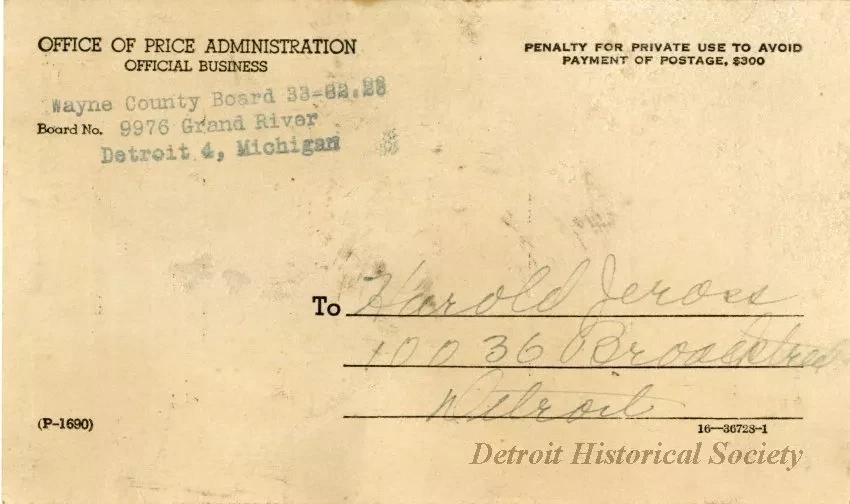 OFFICE OF PRICE ADMINISTRATION
OFFICIAL BUSINESS
PENALTY FOR PRIVATE USE TO AVOID
PAYMENT OF POSTAGE, $300
Wayne County Board 33-82.28
Board No. 9976 Grand River
Detroit 4, Michigan
To Harold Jeross
10036
Detroit
(P-1690)
16—36728-1
Detroit Historical Society